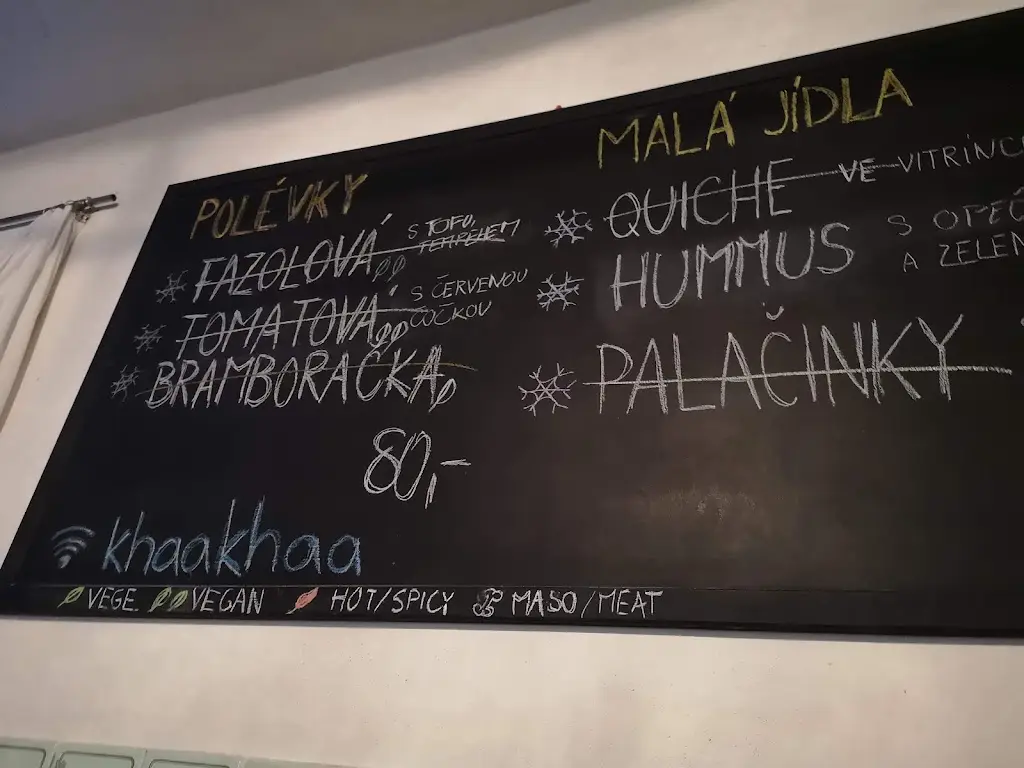 POLÉVKY
FAZOLOVÁ S TOFU,
TEMPEHEM
TOMATOVÁ S ČERVENOU
ČOČKOU
BRAMBORAČKA
80,-
khaakhaa
MALÁ JÍDLA
QUICHE VE VITRÍNCE
HUMMUS S OPEČ
A ZELEN
PALAČINKY
VEGE VEGAN HOT/SPICY MASO/MEAT